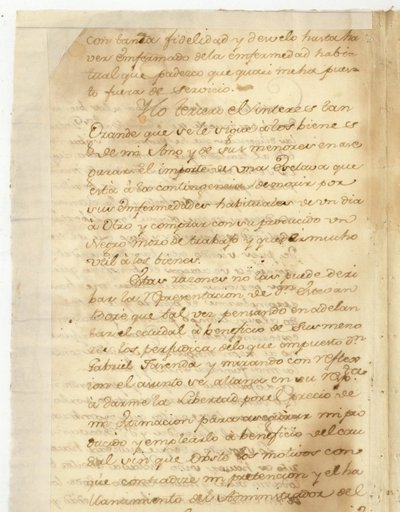 con tanta fidelidad y desvelo hasta ha
ver enfermado de la enfermedad habi
tual que padezco que quasi me ha pues
to fuera de servicio.
Lo tercero el interes tan
Grande que se le sigue a los bienes
de mi Amo y de sus menores en ase
gurar el importe de una Esclava que
està à la contingencia de morir por
sus enfermedades habituales de un dia
à otro y comprar con su producido un
Negro mozo de trabajo y que sea mucho
util à los bienes.
Estas razones no las puede deri
bar la Representacion de Dn Estevan
que tal vez pensando en adelan
tar el caudal à beneficio de sus meno
res los perjudica, de lo que impuesto Dn
Gabriel y mirando con reflex
ion el asunto se allana en su
à darme la Libertad por el precio de
mi estimacion para asegurar mi pro
ducido y emplearlo à beneficio del cau
dal sin que obste los motivos con
que contradize mi pretencion y el ha
llanamiento del Administrador del